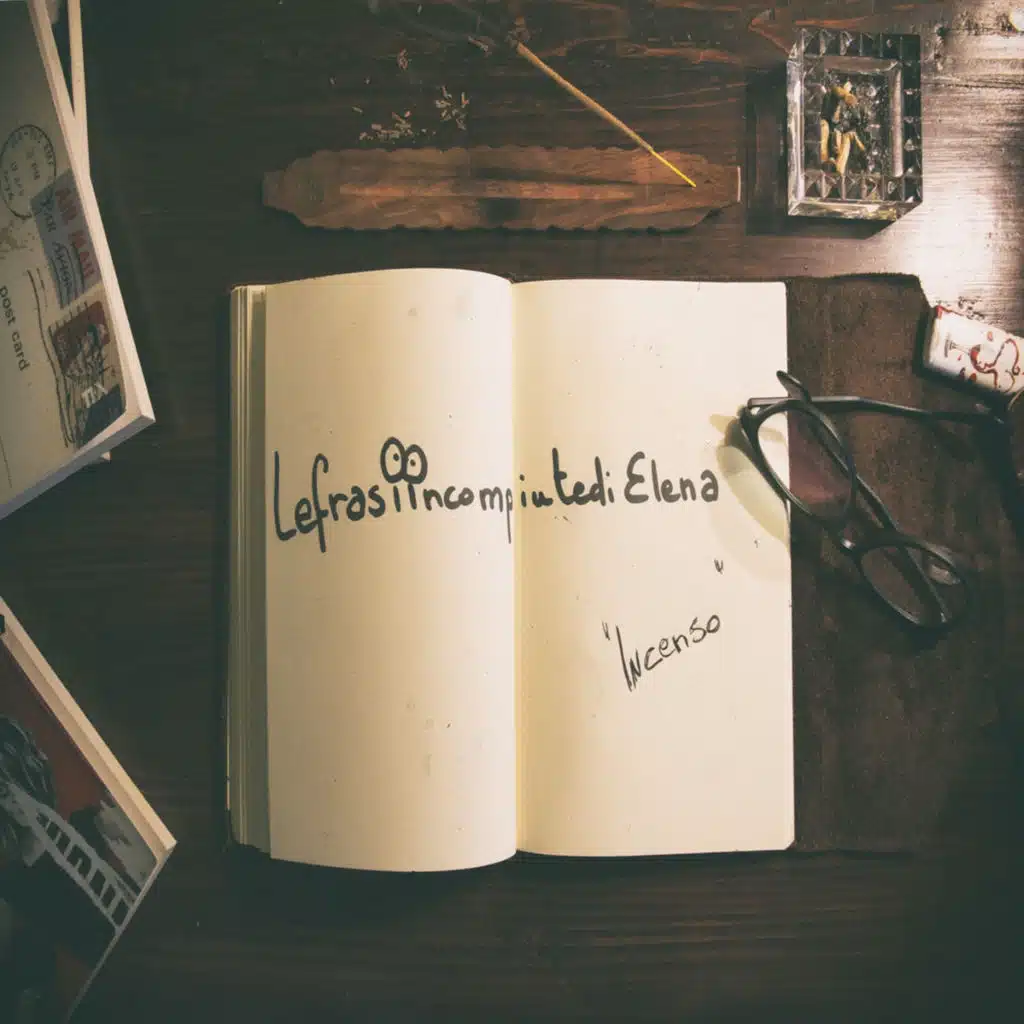 post card
LefrasiIncompiutediElena
"Incenso"